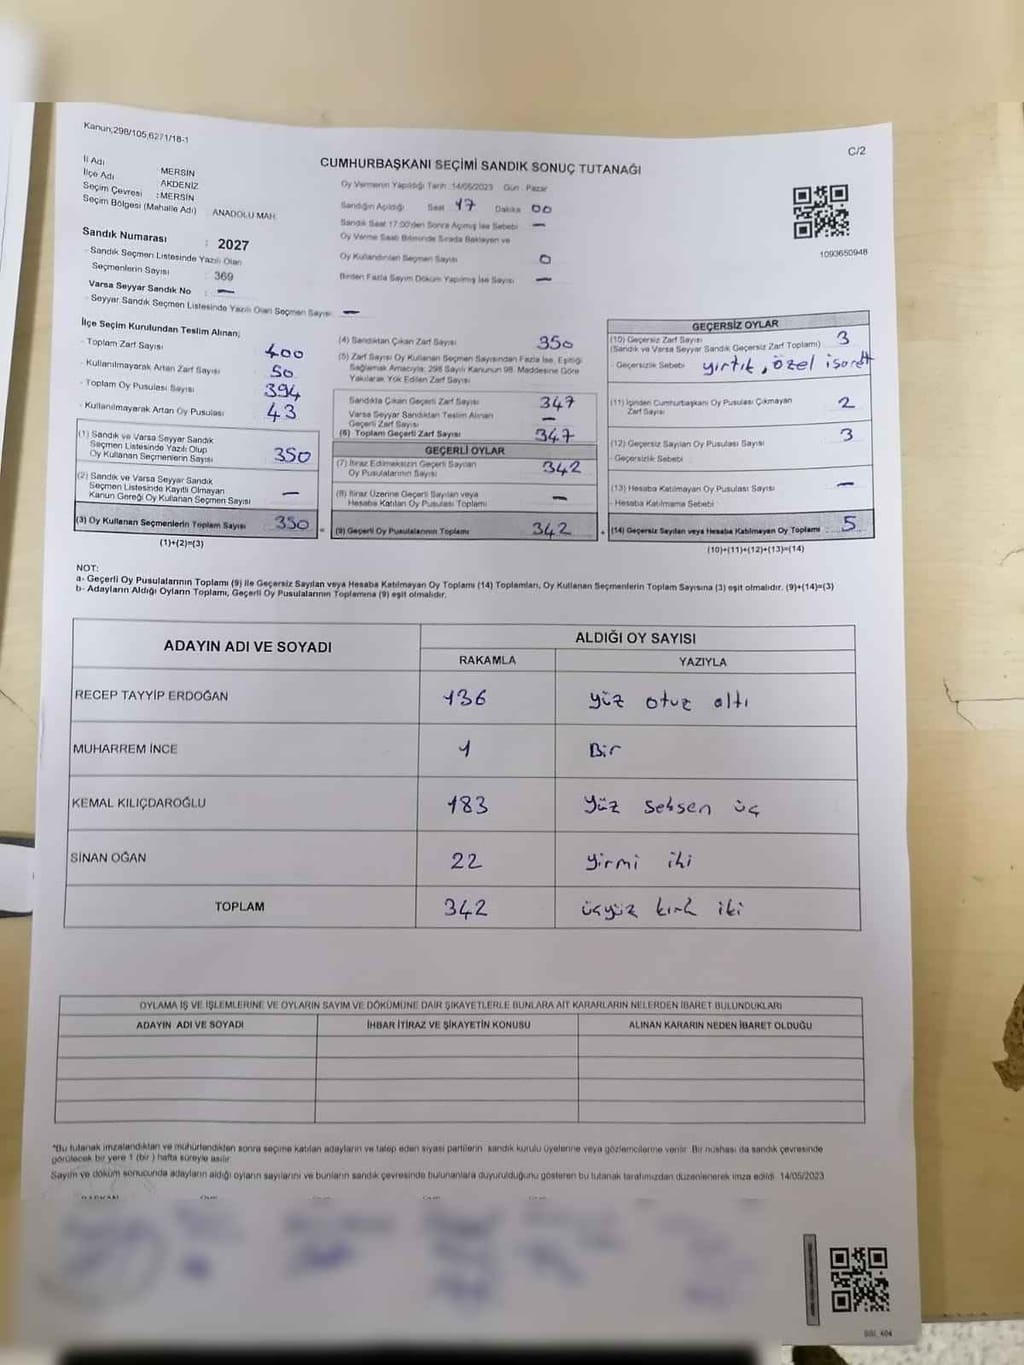 Kanun;298/105,6271/18-1
C/2
CUMHURBAŞKANI SEÇİMİ SANDIK SONUÇ TUTANAĞI
İl Adı : MERSİN
İlçe Adı : AKDENİZ
Seçim Çevresi : MERSİN
Seçim Bölgesi (Mahalle Adı) ANADOLU MAH.
Sandık Numarası : 2027
- Sandık Seçmen Listesinde Yazılı Olan
Seçmenlerin Sayısı : 369
Varsa Seyyar Sandık No : —
- Seyyar Sandık Seçmen Listesinde Yazılı Olan Seçmen Sayısı: —
Oy Vermenin Yapıldığı Tarih :14/05/2023 Gün : Pazar
Sandığın Açıldığı Saat 17 Dakika 00
Sandık Saat 17:00'den Sonra Açılmış İse Sebebi —
Oy Verme Saati Bitiminde Sırada Bekleyen ve
Oy Kullandırılan Seçmen Sayısı 0
Birden Fazla Sayım Döküm Yapılmış İse Sayısı —
1093650948
İlçe Seçim Kurulundan Teslim Alınan;
- Toplam Zarf Sayısı 400
- Kullanılmayarak Artan Zarf Sayısı 50
- Toplam Oy Pusulası Sayısı 394
- Kullanılmayarak Artan Oy Pusulası 43
(1) Sandık ve Varsa Seyyar Sandık
Seçmen Listesinde Yazılı Olup
Oy Kullanan Seçmenlerin Sayısı 350
(2) Sandık ve Varsa Seyyar Sandık
Seçmen Listesinde Kayıtlı Olmayan
Kanun Gereği Oy Kullanan Seçmen Sayısı —
(3) Oy Kullanan Seçmenlerin Toplam Sayısı 350
(1)+(2)=(3)
(4) Sandıktan Çıkan Zarf Sayısı 350
(5) Zarf Sayısı Oy Kullanan Seçmen Sayısından Fazla İse, Eşitliği
Sağlamak Amacıyla; 298 Sayılı Kanunun 98. Maddesine Göre
Yakılarak Yok Edilen Zarf Sayısı
Sandıkta Çıkan Geçerli Zarf Sayısı 347
Varsa Seyyar Sandıktan Teslim Alınan
Geçerli Zarf Sayısı —
(6) Toplam Geçerli Zarf Sayısı 347
GEÇERLİ OYLAR
(7) İtiraz Edilmeksizin Geçerli Sayılan
Oy Pusulalarının Sayısı 342
(8) İtiraz Üzerine Geçerli Sayılan veya
Hesaba Katılan Oy Pusulası Toplamı —
= (9) Geçerli Oy Pusulalarının Toplamı 342
GEÇERSİZ OYLAR
(10) Geçersiz Zarf Sayısı 3
(Sandık ve Varsa Seyyar Sandık Geçersiz Zarf Toplamı)
- Geçersizlik Sebebi yırtık, özel işaret
(11) İçinden Cumhurbaşkanı Oy Pusulası Çıkmayan
Zarf Sayısı 2
(12) Geçersiz Sayılan Oy Pusulası Sayısı 3
- Geçersizlik Sebebi
(13) Hesaba Katılmayan Oy Pusulası Sayısı —
- Hesaba Katılmama Sebebi
+ (14) Geçersiz Sayılan veya Hesaba Katılmayan Oy Toplamı : 5
(10)+(11)+(12)+(13)=(14)
NOT:
a- Geçerli Oy Pusulalarının Toplamı (9) ile Geçersiz Sayılan veya Hesaba Katılmayan Oy Toplamı (14) Toplamları, Oy Kullanan Seçmenlerin Toplam Sayısına (3) eşit olmalıdır. (9)+(14)=(3)
b- Adayların Aldığı Oyların Toplamı, Geçerli Oy Pusulalarının Toplamına (9) eşit olmalıdır.
ADAYIN ADI VE SOYADI ALDIĞI OY SAYISI
RAKAMLA YAZIYLA
RECEP TAYYİP ERDOĞAN 136 yüz otuz altı
MUHARREM İNCE 1 Bir
KEMAL KILIÇDAROĞLU 183 Yüz seksen üç
SİNAN OĞAN 22 yirmi iki
TOPLAM 342 üçyüz kırk iki
OYLAMA İŞ VE İŞLEMLERİNE VE OYLARIN SAYIM VE DÖKÜMÜNE DAİR ŞİKAYETLERLE BUNLARA AİT KARARLARIN NELERDEN İBARET BULUNDUKLARI
ADAYIN ADI VE SOYADI İHBAR İTİRAZ VE ŞİKAYETİN KONUSU ALINAN KARARIN NEDEN İBARET OLDUĞU
*Bu tutanak imzalandıktan ve mühürlendikten sonra seçime katılan adayların ve talep eden siyasi partilerin sandık kurulu üyelerine veya gözlemcilerine verilir. Bir nüshası da sandık çevresinde
görülecek bir yere 1 (bir ) hafta süreyle asılır.
Sayım ve döküm sonucunda adayların aldığı oyların sayılarını ve bunların sandık çevresinde bulunanlara duyurulduğunu gösteren bu tutanak tarafımızdan düzenlenerek imza edildi. 14/05/2023